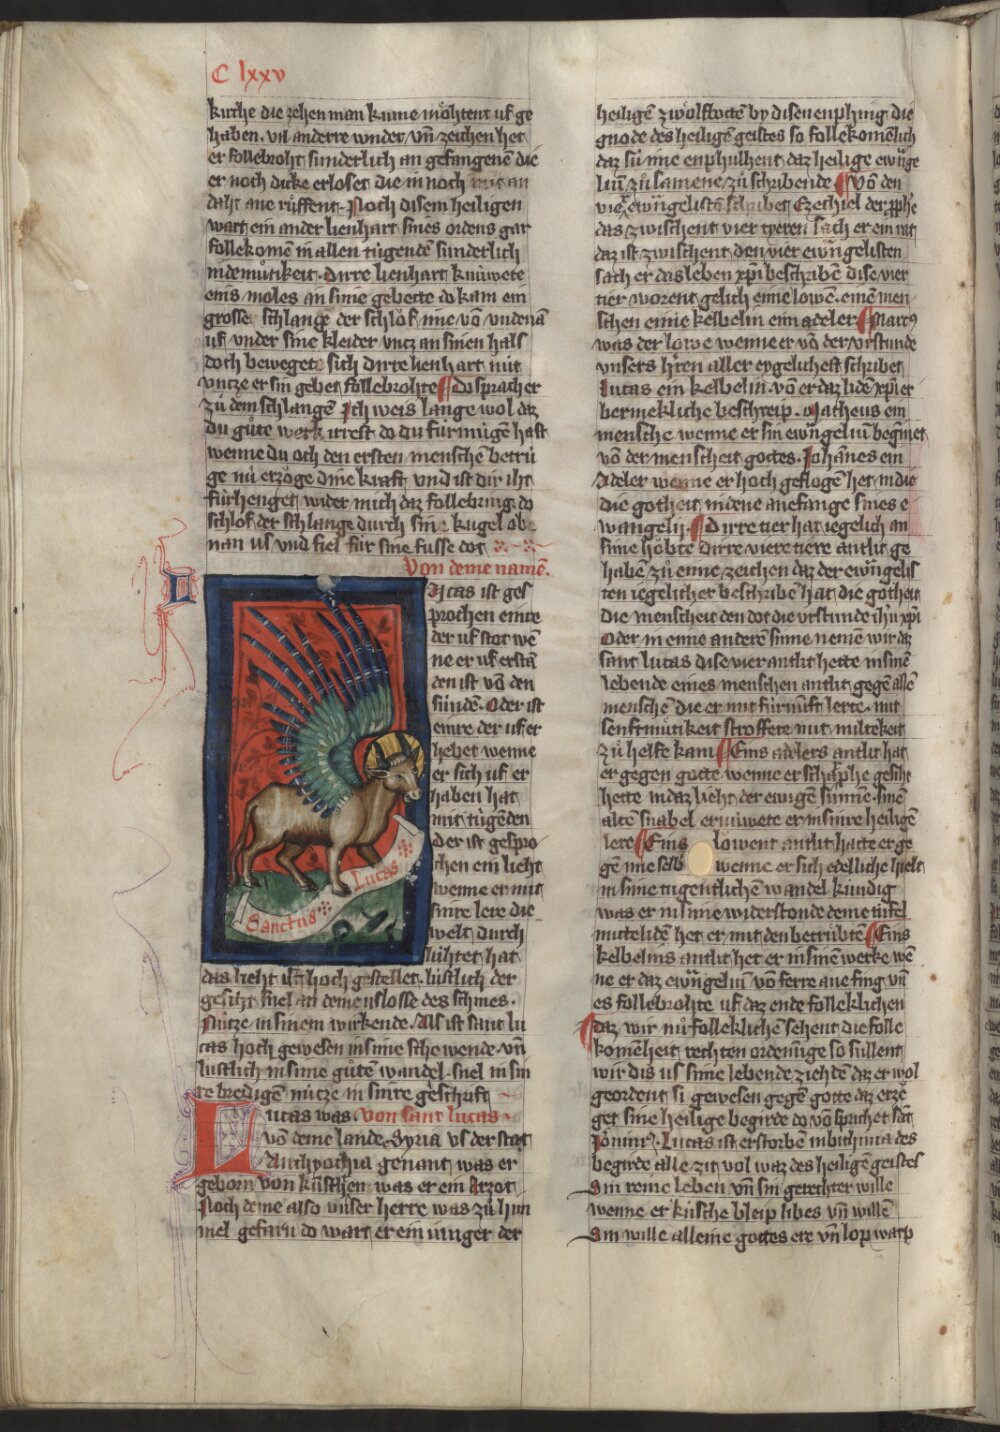 C lxxv
kirche die zehen man kume möhtent uf ge
haben. vn̄ anderre wnder vn̄ zeichen het
er follebroht sunderlich an gefangenē die
er noch dicke erloset die in noch mit an
daht ane rüffent. Noch disem heiligen
wart ein ander lienhart sines ordens gar
follekomē in allen tugendē sunderlich
in demůtikeit. Dirre lienhart knuwete
eins moles an sime gebette do kam ein
grosse schlange der schlof ime vō vndenā
uf vnder sine kleider vncz an sinen hals
doch bewegete sich dirre lienhart nüt
vncze er sin gebet follebrohte Do sprach er
zů dem schlangē Ich weis lange wol daz
du gůte werk irrest do du für mügen hast
wenne du och den ersten menschē betru
ge nů erzöge dine kraft vnd ist dir iht
fürhenget wider mich daz follebring. do
schlof der schlange durch sine kugel obe
nan us vnd fiel für sine füsse dot
Von deme namē.
Lucas ist ges
prochen einre
der uf stot wē
ne er uf erstā
den ist vō den
sündē. Oder ist
einre der uf er
hebet wenne
er sich uf er
haben hat
mit tugenden
der ist gespro
chen ein lieht
wenne er mit
sinre lere die
welt durch
lühtet hat
Sanctus
Lucas
das lieht ist hoch gestellet. lüstlich der
gesiht snel an deme uslosse des schines.
Nütze in sinem wirkende. Als ist sant lu
cas hoch gewesen in sime schewende vn̄
lustlich in sime gůten wandel. snel in sin
re bredigē nücze in sinre geschrift
Lucas was. von sant lucas
vō deme lande Syria us der stat
Anthyochia genant was er
geborn von künsten was er ein Arzot
Noch deme also vnser herre was zů him
mel gefarn do wart er ein iunger der
heiligē zwölfbottē by disen enphing die
gnode des heiligē geistes so follekomēlich
daz sü nüt enphulhent daz heilige ewāge
liū zů samene zů schribende Vō den
vier ewāngelistē schribet Ezechiel der pphē
das zwischent vier tyeren sach er ein rat
daz ist zwischent den vier ewāngelisten
sach er das leben xp̄i beschribē dise vier
tier worent gelich eime lowē. eimē men
schen eime kelbelin eim adeler Marcꝰ
was der lowe wenne er vō der vrstende
vnsers h̄ren aller eygelichest schribet
Lucas ein kelbelin. vō er daz lidē xp̄i er
bermekliche beschreip. Matheus ein
mensche wenne er sin ewāngeliū beginnet
vō der menscheit gottes. Johānes ein
Adeler wenne er hoch geflogē het in die
die gotheit in deme anefange sines e
wangelij. Dirre tier hat iegelich an
sime höbte dirre viere tiere antlit ge
habē zů eime zeichen daz der ewāngelis
ten iegelicher beschribē hat die gotheit
die menscheit den dot die vrstende ih̄u xp̄i
Oder in eime anderē sinne nemē wir daz
sant lucas dise vier antlit hette in sinē
lebende eines menschen antlit gegē allē
menschē die er mit fürnunft lerte. mit
senftmůtikeit stroffete mit miltekeit
zů helfe kam Eins adelers antlit hat
er gegen gotte wenne er scharphe gesiht
hette in daz lieht der ewigē sunnē. sinē
altē snabel ernuwete er in sinre heiligē
lere Eins lowent antlit hatte er ge
gē ime selb wenne er sich edelliche hielt
in sime tugentlichē wandel kündig
was er in sime widerstonde deme tüfel
mitteliden het er mit den betrübtē Eins
kelbelins antlit het er in sinem werke wē
ne er daz ewāngeliū vō ferre ane fing vn̄
es follebrohte uf daz ende folleklichen
daz wir nů folleklichē sehent die folle
komēheit rechten ordenūge so sullent
wir dis us sime lebende ziehē daz er wol
geordent si gewesen gegē gotte daz erze
get sine heilige begirde do vō sprichet sāt
Jeronim9. Lucas ist erstorbē in bithinia des
begirde alle zit vol waz des heiligē geistes
Sin reine leben vn̄ sin gerehter wille
wenne er küsche bleip libes vn̄ willē
Sin wille alleine gottes ere vn̄ lop warp